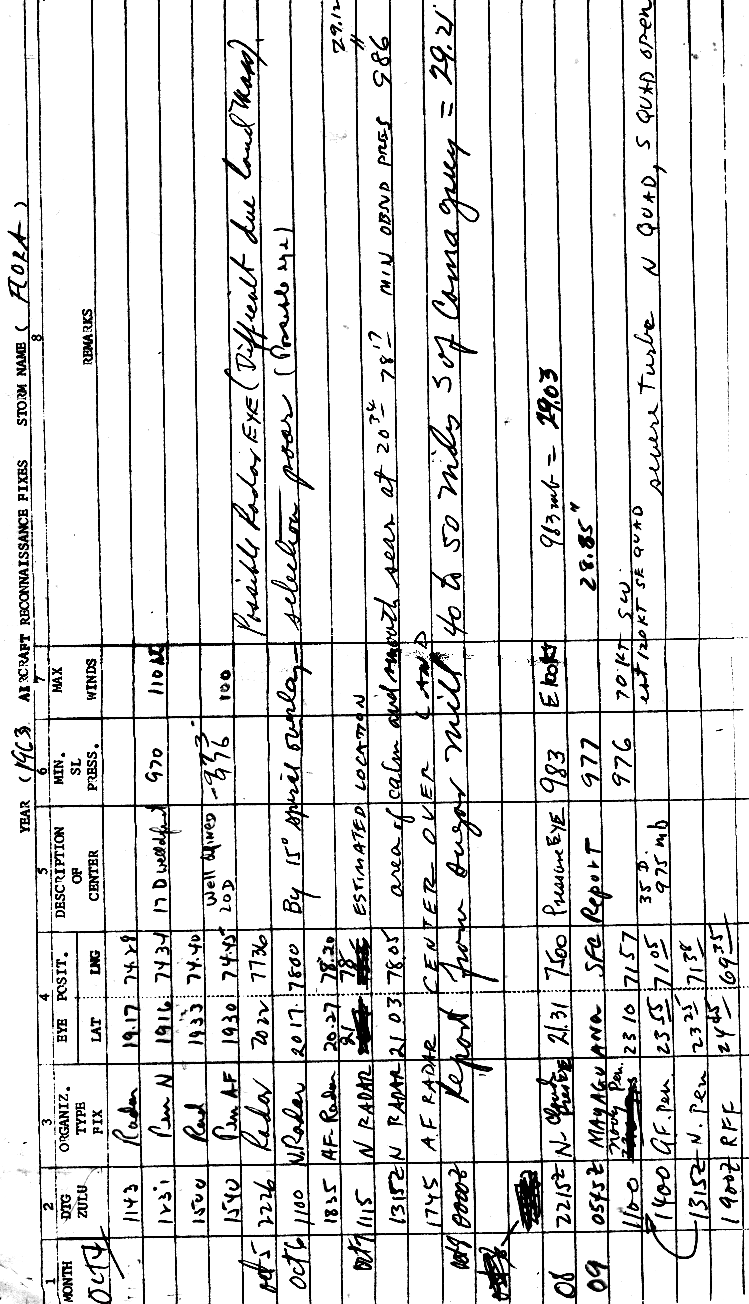 YEAR (1963 AIRCRAFT RECONNAISSANCE FIXES STORM NAME ( FLORA )
1 2 3 4 5 6 7 8
MONTH DTG ZULU ORGANIZ. TYPE FIX EYE POSIT. LAT LNG DESCRIPTION OF CENTER MIN. SL PRESS. MAX WINDS REMARKS
OCT 4
1143 Radar 1917 74.29
1231 Pen N 1916 7434 17 D 970 110
1500 Rad 1933 74.40
1540 Pen AF 1930 74.45 Well defined 20D 976 100
Oct 5 2226 Radar 7736 Possible Radar EYE (Difficult due land mass).
Oct 6 1100 N.Radar 2017 7800 By 15° spiral overlay - selection poor (Possible eye)
1835 AF Radar 20.27 78.20
Oct 7 1115 N RADAR 21 78 ESTIMATED LOCATION 29.12"
1315Z N RADAR 21 03 78.05 area of calm and smooth seas at 20 34 78 17 MIN OBND PRES 986
1745 AF RADAR CENTER OVER LAND
0000Z Report from sugar mill 40 to 50 miles S of Camaguey = 29.21
08 2215Z N- 21.31 7600 Pressure EYE 983 983 mb = 29.03
09 0545Z MAYAGUANA SFC Report 977 28.85"
1100 Navy Pen. 23 10 71 57 976 70 KT SW
1400 AF. pen 23 55 71 05 35 D. 975 mb est 120 KT SE QUAD severe Turbc N QUAD, S QUAD open
1315Z N. Pen 23 25 71 38
1900Z RFF 24 45 69 35